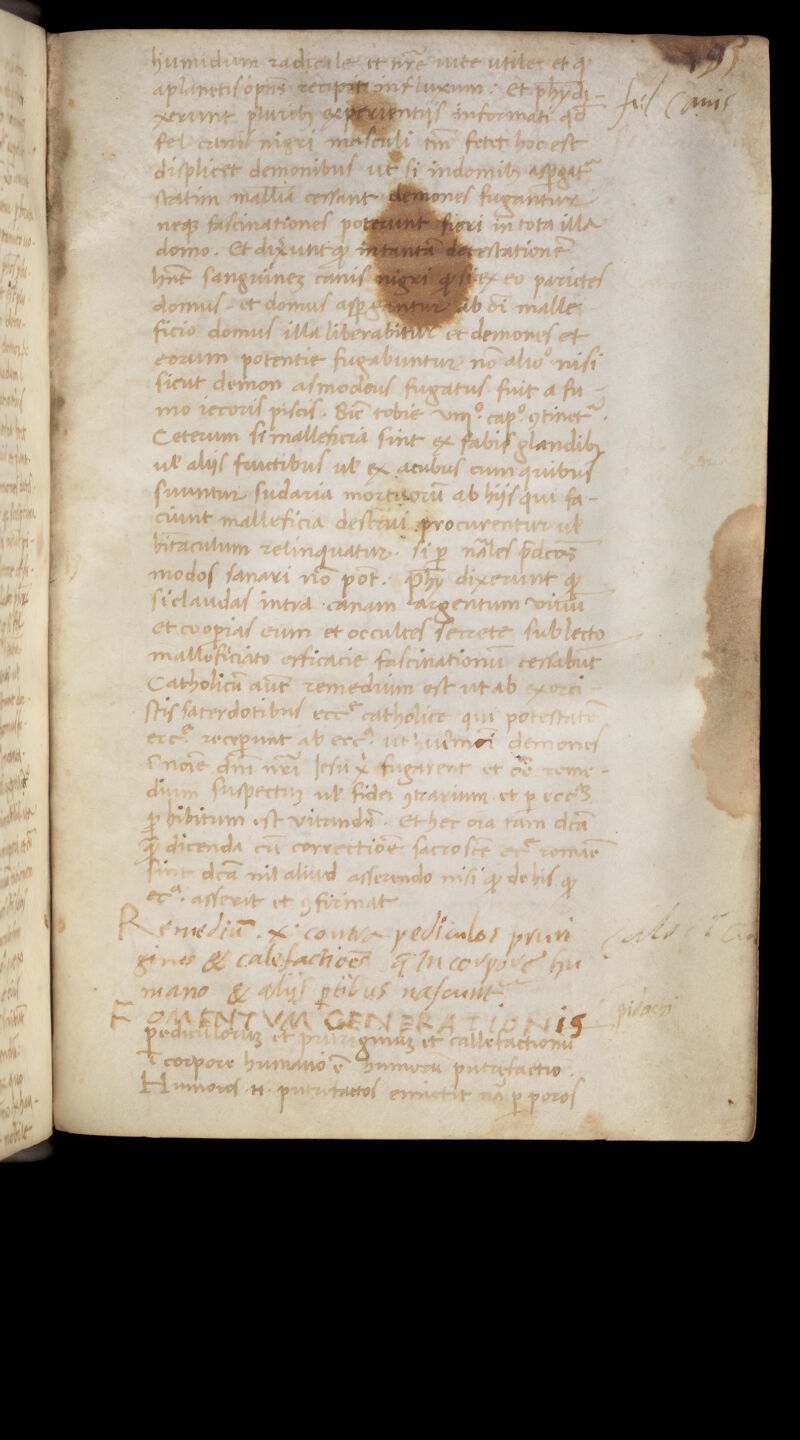 193
humidum radicale et nr̃e uite utiles et q̃
a planetis op̃nt̃ recipit influxum. Et ph̃y di-
fel Canis
xerunt pluribꝫ experientijs informati qđ
fel canis nigri masculi tm̃ fetet hoc est
displicet demonibus ut si in domibꝫ asp̱gatᷣ
statim mallia cessant demones fugantur
neqꝫ fascinationes poterunt fieri in tota illa
domo. Et dixerunt ꝙ in tantã detestationẽ
hñt sanguinez canis nigri ꝙ si ex eo parietes
domus et domus asp̱gantur ab oĩ malle
ficio domus illa liberabitur et demones et
eorum potentie fugabuntur nõ aliẜ nisi
sicut demon asmodeus fugatus fuit a fu-
mo iecoris piscis. Sic̃ tobie viijº. capº. ꝯtinetᷣ.
Ceterum si malleficia sint ex fabis glandibꝫ
uł alijs fructibus uł ex acubus cum quibus
suuntur sudaria mortuorũ ab hijs qui fa-
ciunt malleficia destrui procurentur uł
hitaculum relinquatur. si p̱ nãles p̃dc̃os
modos sanari nõ pot̃. ph̃y dixerunt ꝙ
si claudas intra canam argentum viuũ
et coopias eum et occultes secrete sub lecto
malleficiato efficacie fascinationũ cessabũt
Catholicũ aũt remedium est ut ab exorci-
stis sacerdotibus eccᵉ catholice qui potestatẽ
eccᵉ receperunt ab eccᵃ ut huiusm̃oi demones
ĩ noĩe dñi nr̃i Jesu x̃ fugarent et oẽ reme-
dium suspectuꝫ uł fidei ꝯtrarium et p̱ eccᵃꝫ
ꝓhibitum est vitandũ. Et hec oĩa tam dc̃a
ꝙ̃ dicenda cũ correctiõe sacrosc̃e ecᵉ romãe
sint dc̃a nil aliud asserendo nisi ꝙ de his ꝙ
ecᵃ. asserit et ꝯfirmat
Remediũ. x. contra pediculos pruri
gines & calefactiões q̃ In corpore hu
mano & alijs p̱tibus nascuntᷣ
FOMENTVM GENERATIONIS
pediculoruꝫ et pruriginuꝫ et callefactionũ
ĩ corpore humano ẽ humorũ putrefactio.
Humores .n. putrefactos emictit nã p̱ poros